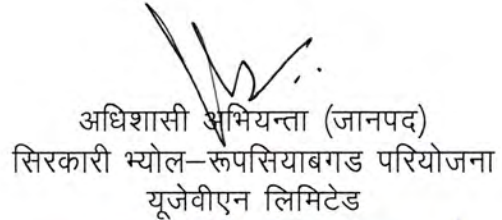 अधिशासी अभियन्ता (जानपद)
सिरकारी भ्योल–रूपसियाबगड परियोजना
यूजेवीएन लिमिटेड